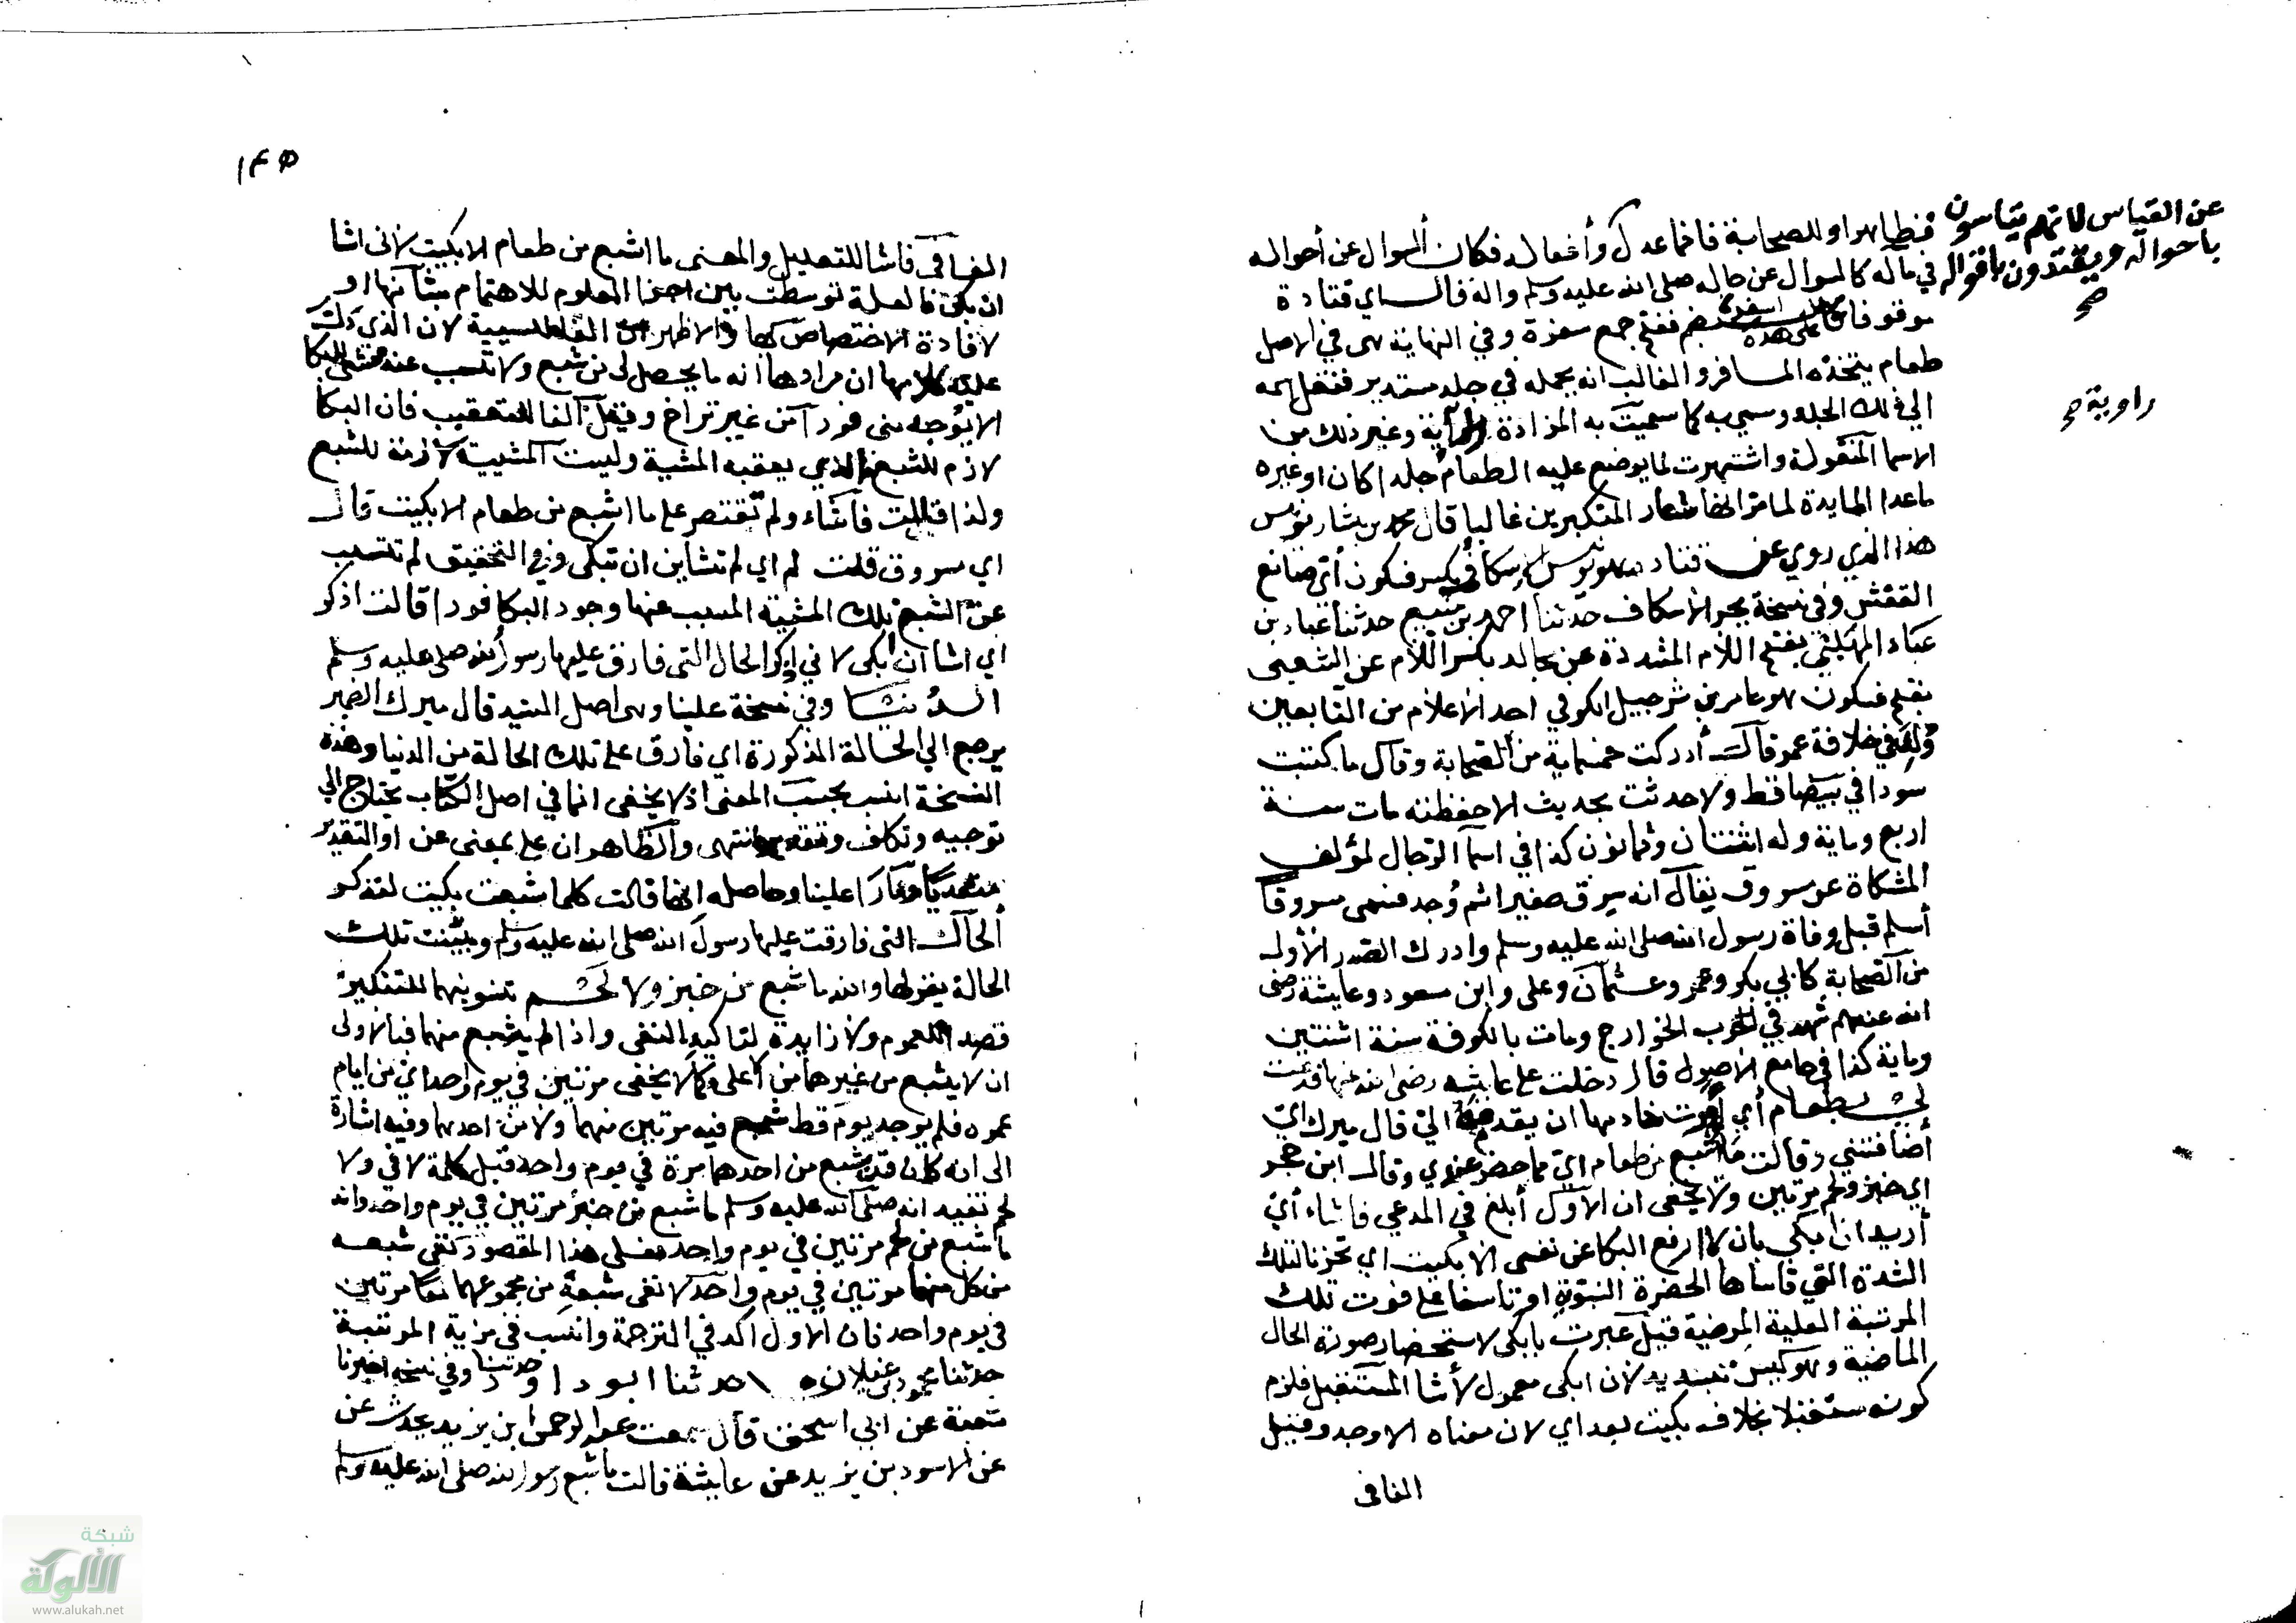 عن القياس لانهم يتاسون
باحواله ويقتدون باقواله
صح
راوية صح
فظاهر او للصحابة فانما عدل وأفعاله فكان السوال عن أحواله
في مآله كالسوال عن حاله صلى الله عليه وسلم واله قال اي قتادة
موقوفا على هذه السفر بضم ففتح جمع سفرة وفي النهاية هى في الاصل
طعام يتخذه المسافر والغالب انه يحمله في جلد مستدير فنقل اسمه
الى ذلك الجلد وسمي به كما سميت به المزادة راوية وغير ذلك من
الاسما المنقولة واشتهرت لما يوضع عليه الطعام جلدا كان او غيره
ماعدا المايدة لما مر انها شعار المتكبرين غالبا قال محمد بن بشار يونس
هذا الذي روي عن قتادة هو يونس الاسكاف بكسر فسكون أي صانع
القفش وفي نسخة بجر الاسكاف حدثنا احمد بن منيع حدثنا عباد بن
عباد المهلبي بفتح اللام المشددة عن مجالد بكسر اللام عن الشعبى
بفتح فسكون هو عامر بن شرحبيل الكوفي احد الاعلام من التابعين
ولد في خلافة عمر قال أدركت خمسماية من الصحابة وقال ما كتبت
سودا في بيضا قط ولا حدثت بحديث الا حفظته مات سنة
اربع وماية وله اثنتان وثمانون كذا في اسما الرجال لمؤلف
المشكاة عن مسروق يقال انه سرق صغيرا ثم وجد فسمى مسروقا
أسلم قبل وفاة رسول الله صلى الله عليه وسلم وادرك الصدر الأول
من الصحابة كابي بكر وعمر وعثمان وعلى وابن مسعود وعايشة رضى
الله عنهم شهد في الحرب الخوارج ومات بالكوفة سنة اثنتين
وماية كذا في جامع الاصول قال دخلت على عايشة رضى الله عنها فدعت
لي بطعام أي أمرت خادمها ان يقدمه الي قال ميرك اي
أضافتني وقالت ما اشبع من طعام اي مما حضر عندي وقال ابن حجر
اي خبز ولحم مرتين ولا يخفى ان الاول أبلغ في المدعي فاشاء أي
أريد ان ابكي بان لا ارفع البكا عن نفسى الا بكيت اي تحزنا لتلك
الشدة التي قاساها الحضرة النبوة او تاسفا على فوت تلك
المرتبة العلية المرضية قيل عبرت بابكى لاستحضار صورة الحال
الماضية وهو ليس بسديد لان ابكى معمول لأشا المستقبل فلزم
كونه مستقبلا بخلاف بكيت بعد اي لان معناه الا وجد وقيل
الفافى
١٤٥
الفا في فاشا للتعليل والمعنى ما اشبع من طعام الا بكيت لانى اشا
ان ابكى فالعلة توسطت بين اجزا المعلوم للاهتمام بشانها او
لافادة الاختصاص بها والاظهر ان الفا للسببية لان الذي دلت
عليه كلامها ان مرادها انه ما يحصل لى من شبع ولا تسبب عنه مشيئتى للبكا
الا يوجد منى فورا من غير تراخ وقيل الفا للتعقيب فان البكا
لازم للشبع الذي يعقبه المشية وليست المشيية لازمة للشبع
ولذا قالت فأشاء ولم تقتصر على ما اشبع من طعام الا بكيت قال
اي مسروق قلت لم اي لم تشاين ان تبكى وفى التحقيق لم تسبب
عن الشبع تلك المشية المسبب عنها وجود البكا فورا قالت اذكر
اي اشا ان ابكى لاني اذكر الحال التى فارق عليها رسول الله صلى الله عليه وسلم
الدنيا وفي نسخة علينا وهى اصل السيد قال ميرك الضمير
يرجع الي الحالة المذكورة اي فارق على تلك الحالة من الدنيا وهذه
النسخة انسب بحسب المعنى اذ لا يخفى انما في اصل الكتاب يحتاج الي
توجيه وتكلف وتقدير انتهى والظاهر ان على بمعنى عن او التقدير
متعديا ومارا علينا وحاصله انها قالت كلما شبعت بكيت لتذكر
الحال التى فارقت عليها رسول الله صلى الله عليه وسلم وبينت تلك
الحالة بقولها والله ما شبع من خبز ولا لحم تنوينهما للتنكير
قصد العموم ولا زايدة لتاكيد النفى واذا لم يشبع منهما فبالاولى
ان لا يشبع من غيرهما من الاعلى كما لا يخفى مرتين في يوم واحد اي من ايام
عمره فلم يوجد يوم قط شبع فيه مرتين منهما ولا من احدهما وفيه اشارة
الى انه كان قد يشبع من احدهما مرة في يوم واحد قيل كلمة لا في ولا
لحم تفيد انه صلى الله عليه وسلم ما شبع من خبز مرتين في يوم واحد وانه
ما شبع من لحم مرتين في يوم واحد فعلى هذا المقصود نفى شبعه
من كل منهما مرتين في يوم واحد لا نفى شبعه من مجموعهما معا مرتين
في يوم واحد فان الاول اكد في الترجمة وانسب في مزية المرتبة
حدثنا محمود بن غيلان حدثنا ابو داود حدثنا وفي نسخة اخبرنا
شعبة عن ابي اسحق قال سمعت عبد الرحمن ابن يزيد يحدث عن
عن الاسود بن يزيد عن عايشة قالت ما شبع رسول الله صلى الله عليه وسلم
شبكة
الألوكة
www.alukah.net